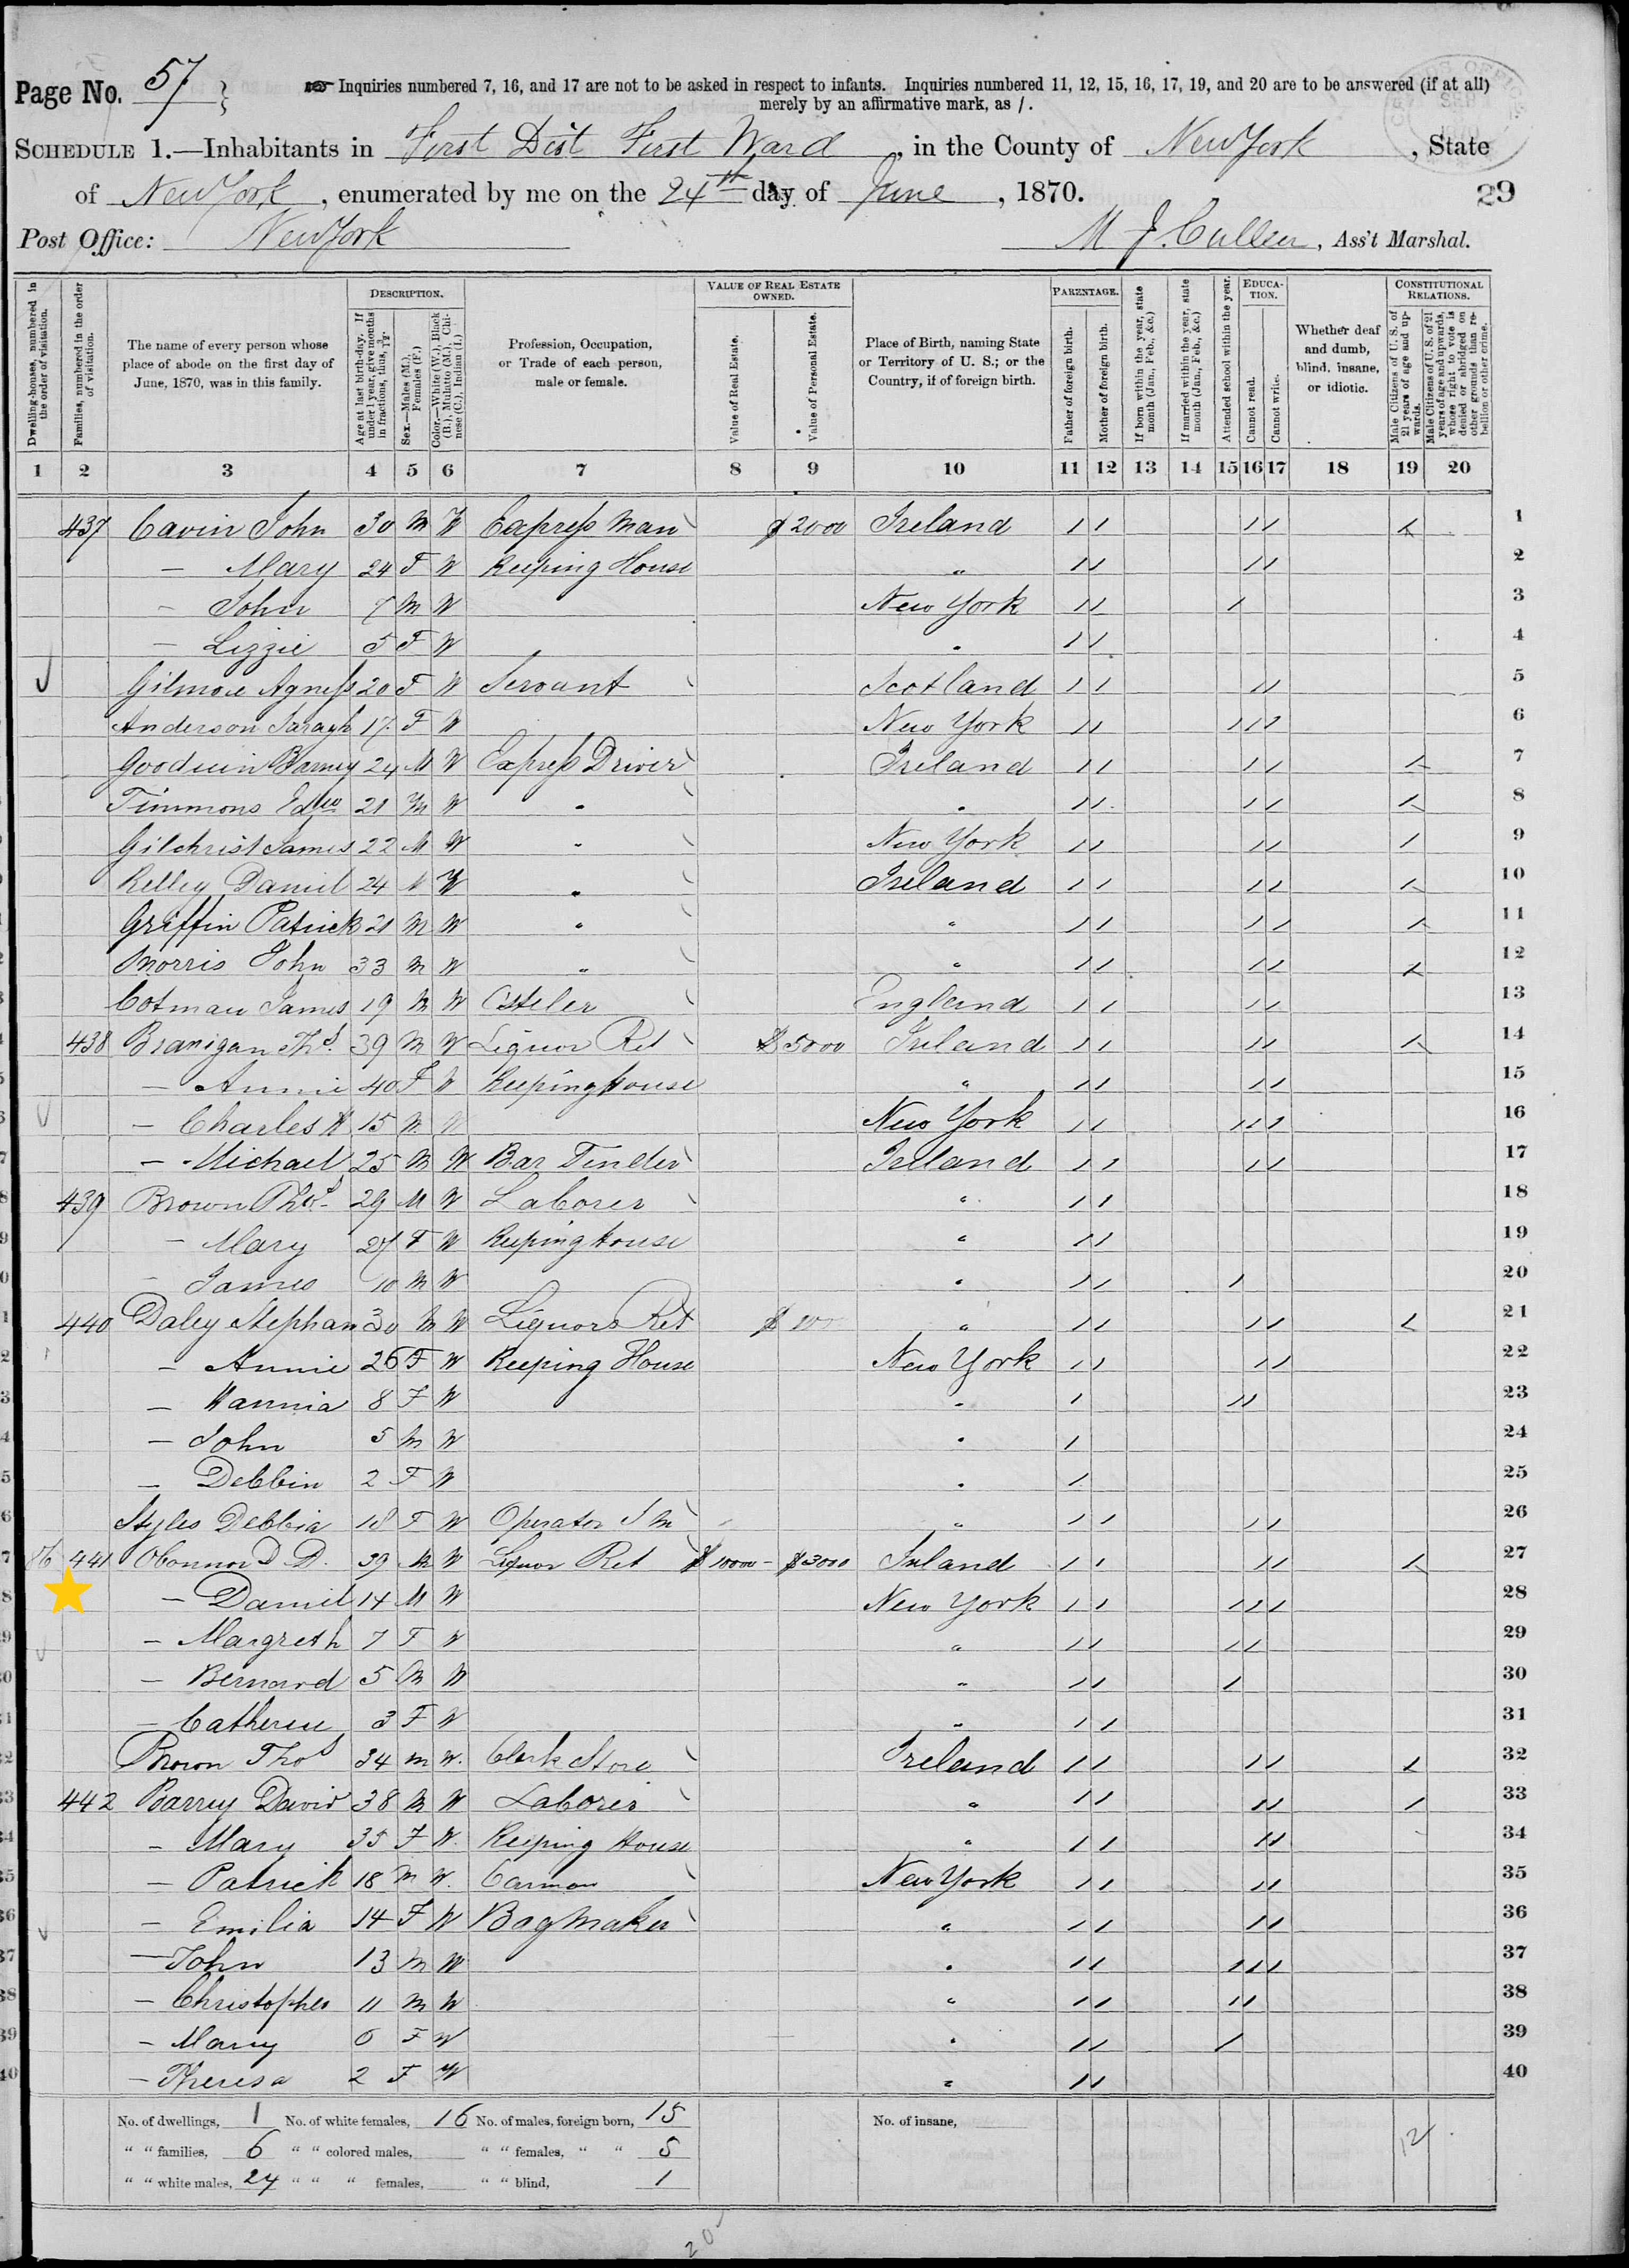 Page No. 57
Inquiries numbered 7, 16, and 17 are not to be asked in respect to infants. Inquiries numbered 11, 12, 15, 16, 17, 19, and 20 are to be answered (if at all)
merely by an affirmative mark, as /.
SCHEDULE 1.—Inhabitants in First Dist First Ward, in the County of New York, State
of New York, enumerated by me on the 24th day of June, 1870.
29
Post Office: New York
M J. Cullen, Ass't Marshal.
Dwelling-houses, numbered in the order of visitation.
Families, numbered in the order of visitation.
The name of every person whose place of abode on the first day of June, 1870, was in this family.
DESCRIPTION.
Age at last birth-day. If under 1 year, give months in fractions, thus, 3/12.
Sex.—Males (M.), Females (F.)
Color.—White (W.), Black (B.), Mulatto (M.), Chinese (C.), Indian (I.)
Profession, Occupation, or Trade of each person, male or female.
VALUE OF REAL ESTATE OWNED.
Value of Real Estate.
Value of Personal Estate.
Place of Birth, naming State or Territory of U. S.; or the Country, if of foreign birth.
PARENTAGE.
Father of foreign birth.
Mother of foreign birth.
If born within the year, state month (Jan., Feb., &c.)
If married within the year, state month (Jan., Feb., &c.)
Attended school within the year.
EDUCATION.
Cannot read.
Cannot write.
Whether deaf and dumb, blind, insane, or idiotic.
CONSTITUTIONAL RELATIONS.
Male Citizens of U. S. of 21 years of age and upwards.
Male Citizens of U. S. of 21 years of age and upwards, whose right to vote is denied or abridged on other grounds than rebellion or other crime.
1 2 3 4 5 6 7 8 9 10 11 12 13 14 15 16 17 18 19 20
437 Cavin John 30 M W Express Man $2000 Ireland / / / / / 1
— Mary 24 F W Keeping House " / / / / 2
— John 7 M W New York / / / 3
— Lizzie 5 F W " / / 4
Gilmore Agness 20 F W Servant Scotland / / / / 5
Anderson Saragh 17 F W New York / / / / / 6
Goodwin Barney 24 M W Express Driver Ireland / / / / / 7
Timmons Edwd 21 M W " " / / / / / 8
Gilchrist James 22 M W " New York / / / / / 9
Kelley Daniel 24 M W " Ireland / / / / / 10
Griffin Patrick 21 M W " " / / / / / 11
Morris John 33 M W " " / / / / / 12
Cotman James 19 M W Osteler England / / / / 13
438 Branigan Ths. 39 M W Liquor Ret $5000 Ireland / / / / / 14
— Annie 40 F W Keeping House " / / / / 15
— Charles H 15 M W New York / / / / / 16
— Michael 25 M W Bar Tender Ireland / / / / 17
439 Brown Thos 29 M W Laborer " / / 18
— Mary 27 F W Keeping House " / / 19
— James 10 M W " / / / 20
440 Daley Stephan 30 M W Liquors Ret $ 100 " / / / / / 21
— Annie 26 F W Keeping House New York / / / / 22
— Hannia 8 F W " / / / 23
— John 5 M W " / 24
— Debbin 2 F W " / 25
Styles Debbia 18 F W Operator S M " / / / / 26
86 441 OConnor D D. 39 M W Liquor Ret $10000 - $3000 Ireland / / / / / 27
— Daniel 14 M W New York / / / / / 28
— Margreth 7 F W " / / / / 29
— Bernard 5 M W " / / / 30
— Catherin 3 F W " / / 31
Brown Thos 34 M W. Clerk Store Ireland / / / / / 32
442 Barry David 38 M W Laborer " / / / / / 33
— Mary 35 F W. Keeping House " / / / / 34
— Patrick 18 M W. Carman New York / / / / 35
— Emilia 14 F W Bag Maker " / / / / 36
— John 13 M W " / / / / / 37
— Christopher 11 M W " / / / / 38
— Mary 6 F W " / / / 39
— Theresa 2 F W " / / 40
No. of dwellings, 1 No. of white females, 16 No. of males, foreign born, 15 No. of insane,
" " families, 6 " " colored males, " " females, " " 5 12
" " white males, 24 " " " females, " " blind, 1
20